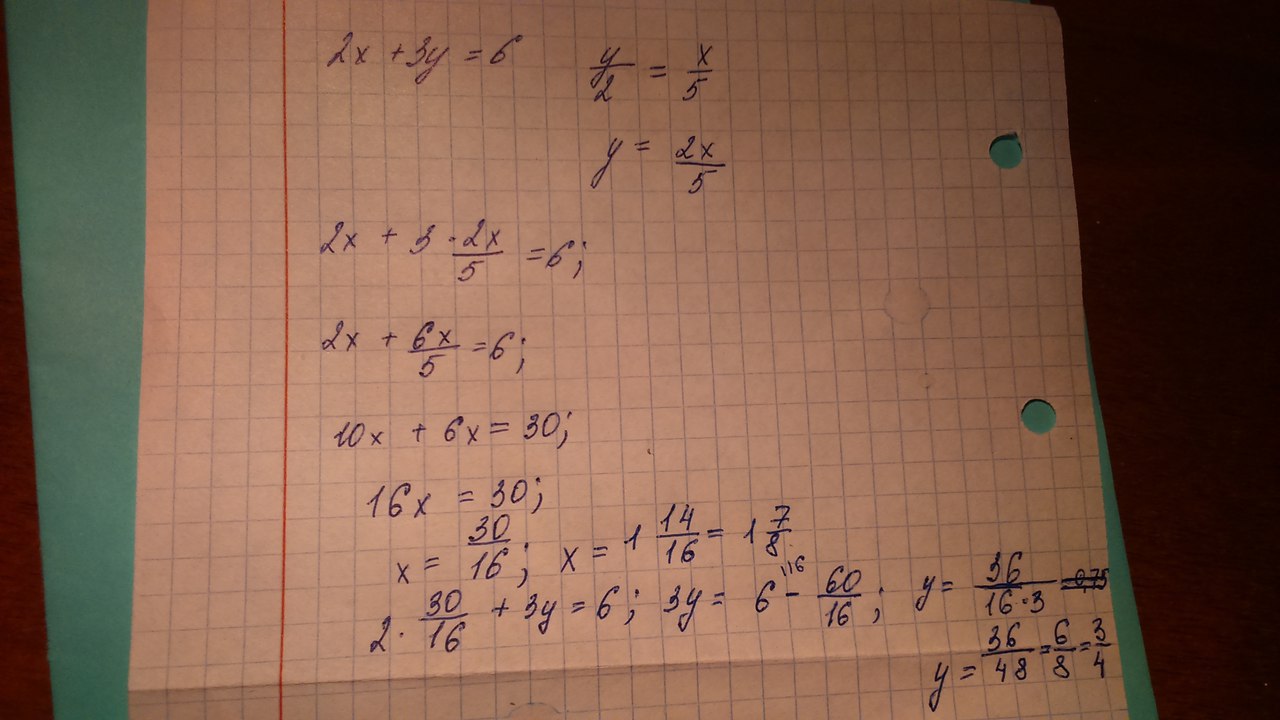 2x + 3y = 6    y/2 = x/5
y = 2x/5
2x + 3 · 2x/5 = 6;
2x + 6x/5 = 6;
10x + 6x = 30;
16x = 30;
x = 30/16; x = 1 14/16 = 1 7/8
2 · 30/16 + 3y = 6; 3y = 6 \16 - 60/16; y = 36/(16·3) =
y = 36/48 = 6/8 = 3/4